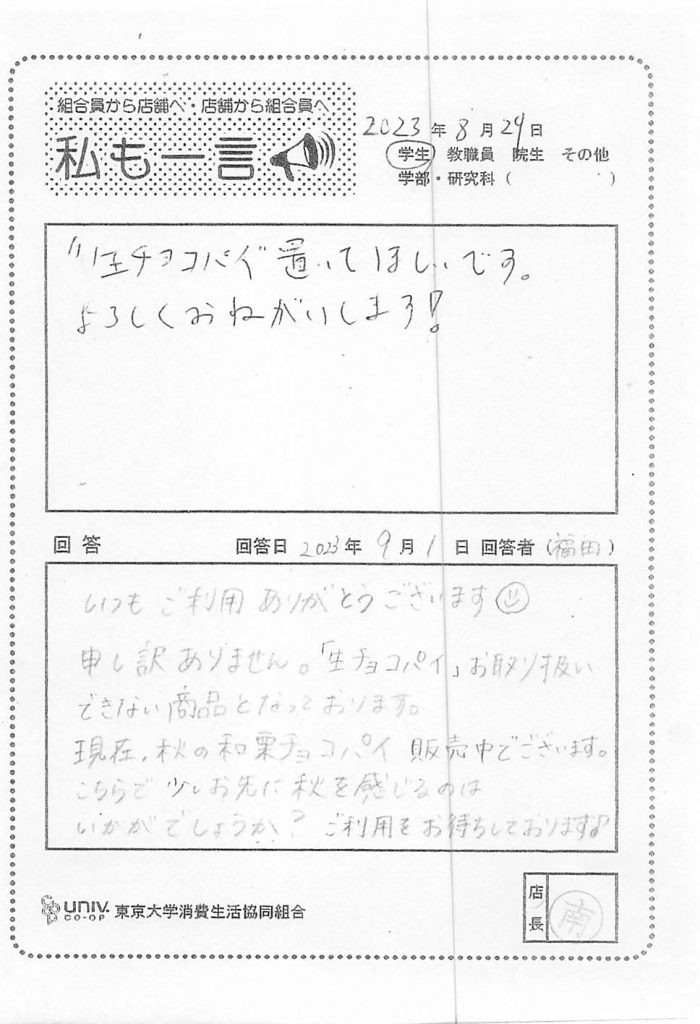 組合員から店舗へ・店舗から組合員へ
私も一言
2023年8月29日
学生 教職員 院生 その他
学部・研究科( )
"生チョコパイ"置いてほしいです。
よろしくおねがいします!
回答 回答日 2023年9月1日 回答者(福田)
いつもご利用ありがとうございます
申し訳ありません。「生チョコパイ」お取り扱い
できない商品となっております。
現在、秋の和栗チョコパイ 販売中でございます。
こちらで少しお先に秋を感じるのは
いかがでしょうか? ご利用をお待ちしております♪
UNIV. CO-OP 東京大学消費生活協同組合
店長 南